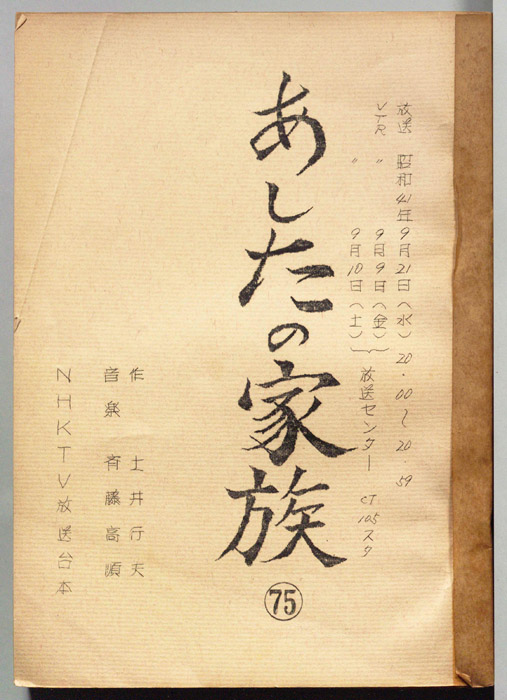 放送 昭和41年9月21日(水)20.00〜20.59
VTR 〃 9月9日(金)
〃 9月10日(土)
放送センター CT105スタ
あしたの家族
75
作 土井行夫
音楽 斉藤高順
NHKTV放送台本